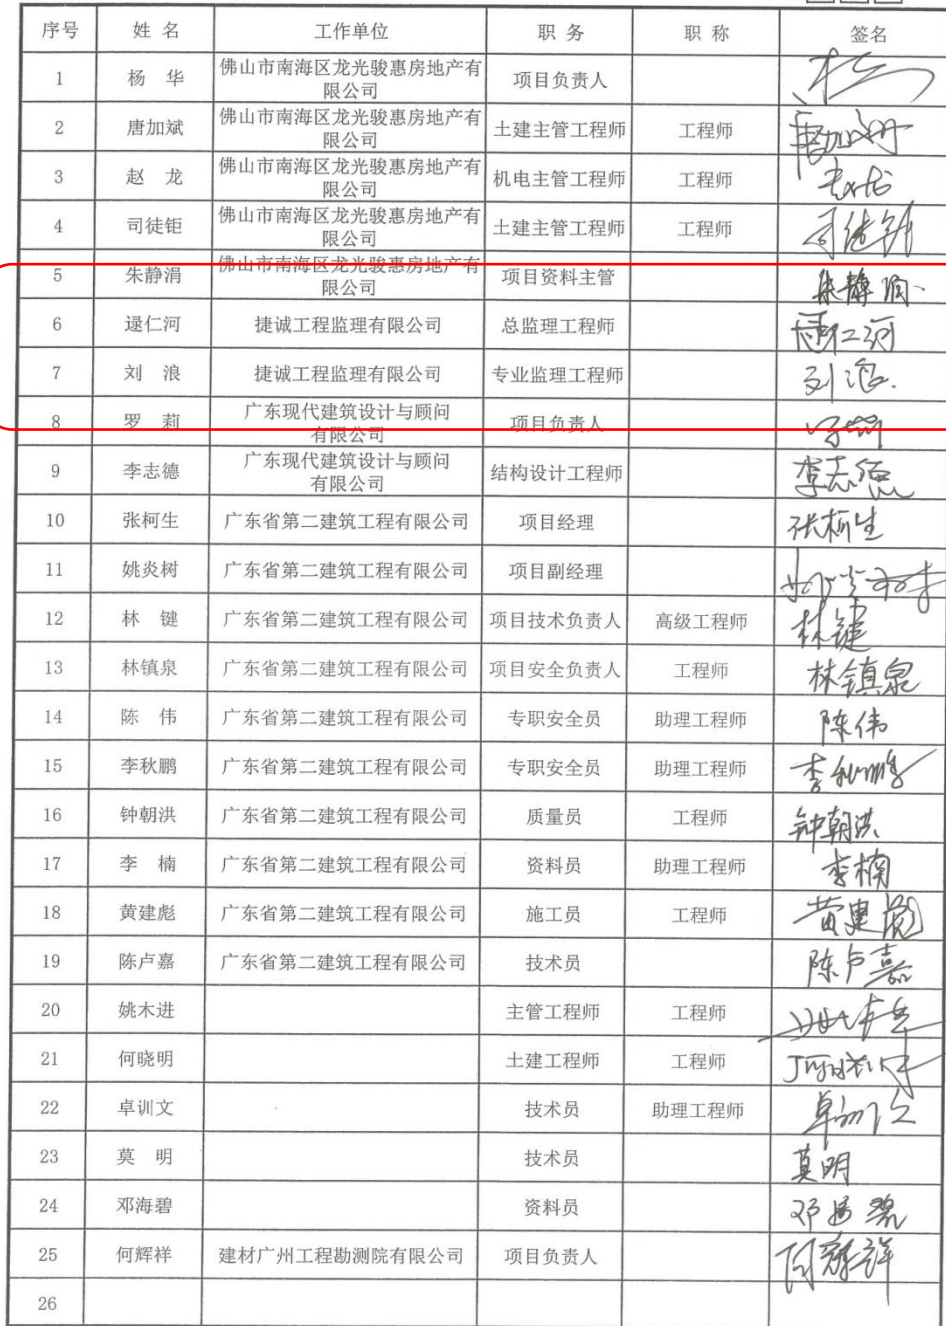 序号 姓 名 工作单位 职 务 职 称 签名
1 杨 华 佛山市南海区龙光骏惠房地产有 项目负责人
限公司
2 唐加斌 佛山市南海区龙光骏惠房地产有 土建主管工程师 工程师 唐加斌
限公司
3 赵 龙 佛山市南海区龙光骏惠房地产有 机电主管工程师 工程师 赵龙
限公司
4 司徒钜 佛山市南海区龙光骏惠房地产有 土建主管工程师 工程师 司徒钜
限公司
5 朱静涓 佛山市南海区龙光骏惠房地产有 项目资料主管 朱静涓
限公司
6 逯仁河 捷诚工程监理有限公司 总监理工程师
7 刘 浪 捷诚工程监理有限公司 专业监理工程师 刘浪
8 罗 莉 广东现代建筑设计与顾问 项目负责人 罗莉
有限公司
9 李志德 广东现代建筑设计与顾问 结构设计工程师 李志德
有限公司
10 张柯生 广东省第二建筑工程有限公司 项目经理 张柯生
11 姚炎树 广东省第二建筑工程有限公司 项目副经理
12 林 键 广东省第二建筑工程有限公司 项目技术负责人 高级工程师 林键
13 林镇泉 广东省第二建筑工程有限公司 项目安全负责人 工程师 林镇泉
14 陈 伟 广东省第二建筑工程有限公司 专职安全员 助理工程师 陈伟
15 李秋鹏 广东省第二建筑工程有限公司 专职安全员 助理工程师 李秋鹏
16 钟朝洪 广东省第二建筑工程有限公司 质量员 工程师 钟朝洪
17 李 楠 广东省第二建筑工程有限公司 资料员 助理工程师 李楠
18 黄建彪 广东省第二建筑工程有限公司 施工员 工程师 黄建彪
19 陈卢嘉 广东省第二建筑工程有限公司 技术员 陈卢嘉
20 姚木进 主管工程师 工程师
21 何晓明 土建工程师 工程师
22 卓训文 技术员 助理工程师 卓训文
23 莫 明 技术员 莫明
24 邓海碧 资料员 邓海碧
25 何辉祥 建材广州工程勘测院有限公司 项目负责人 何辉祥
26